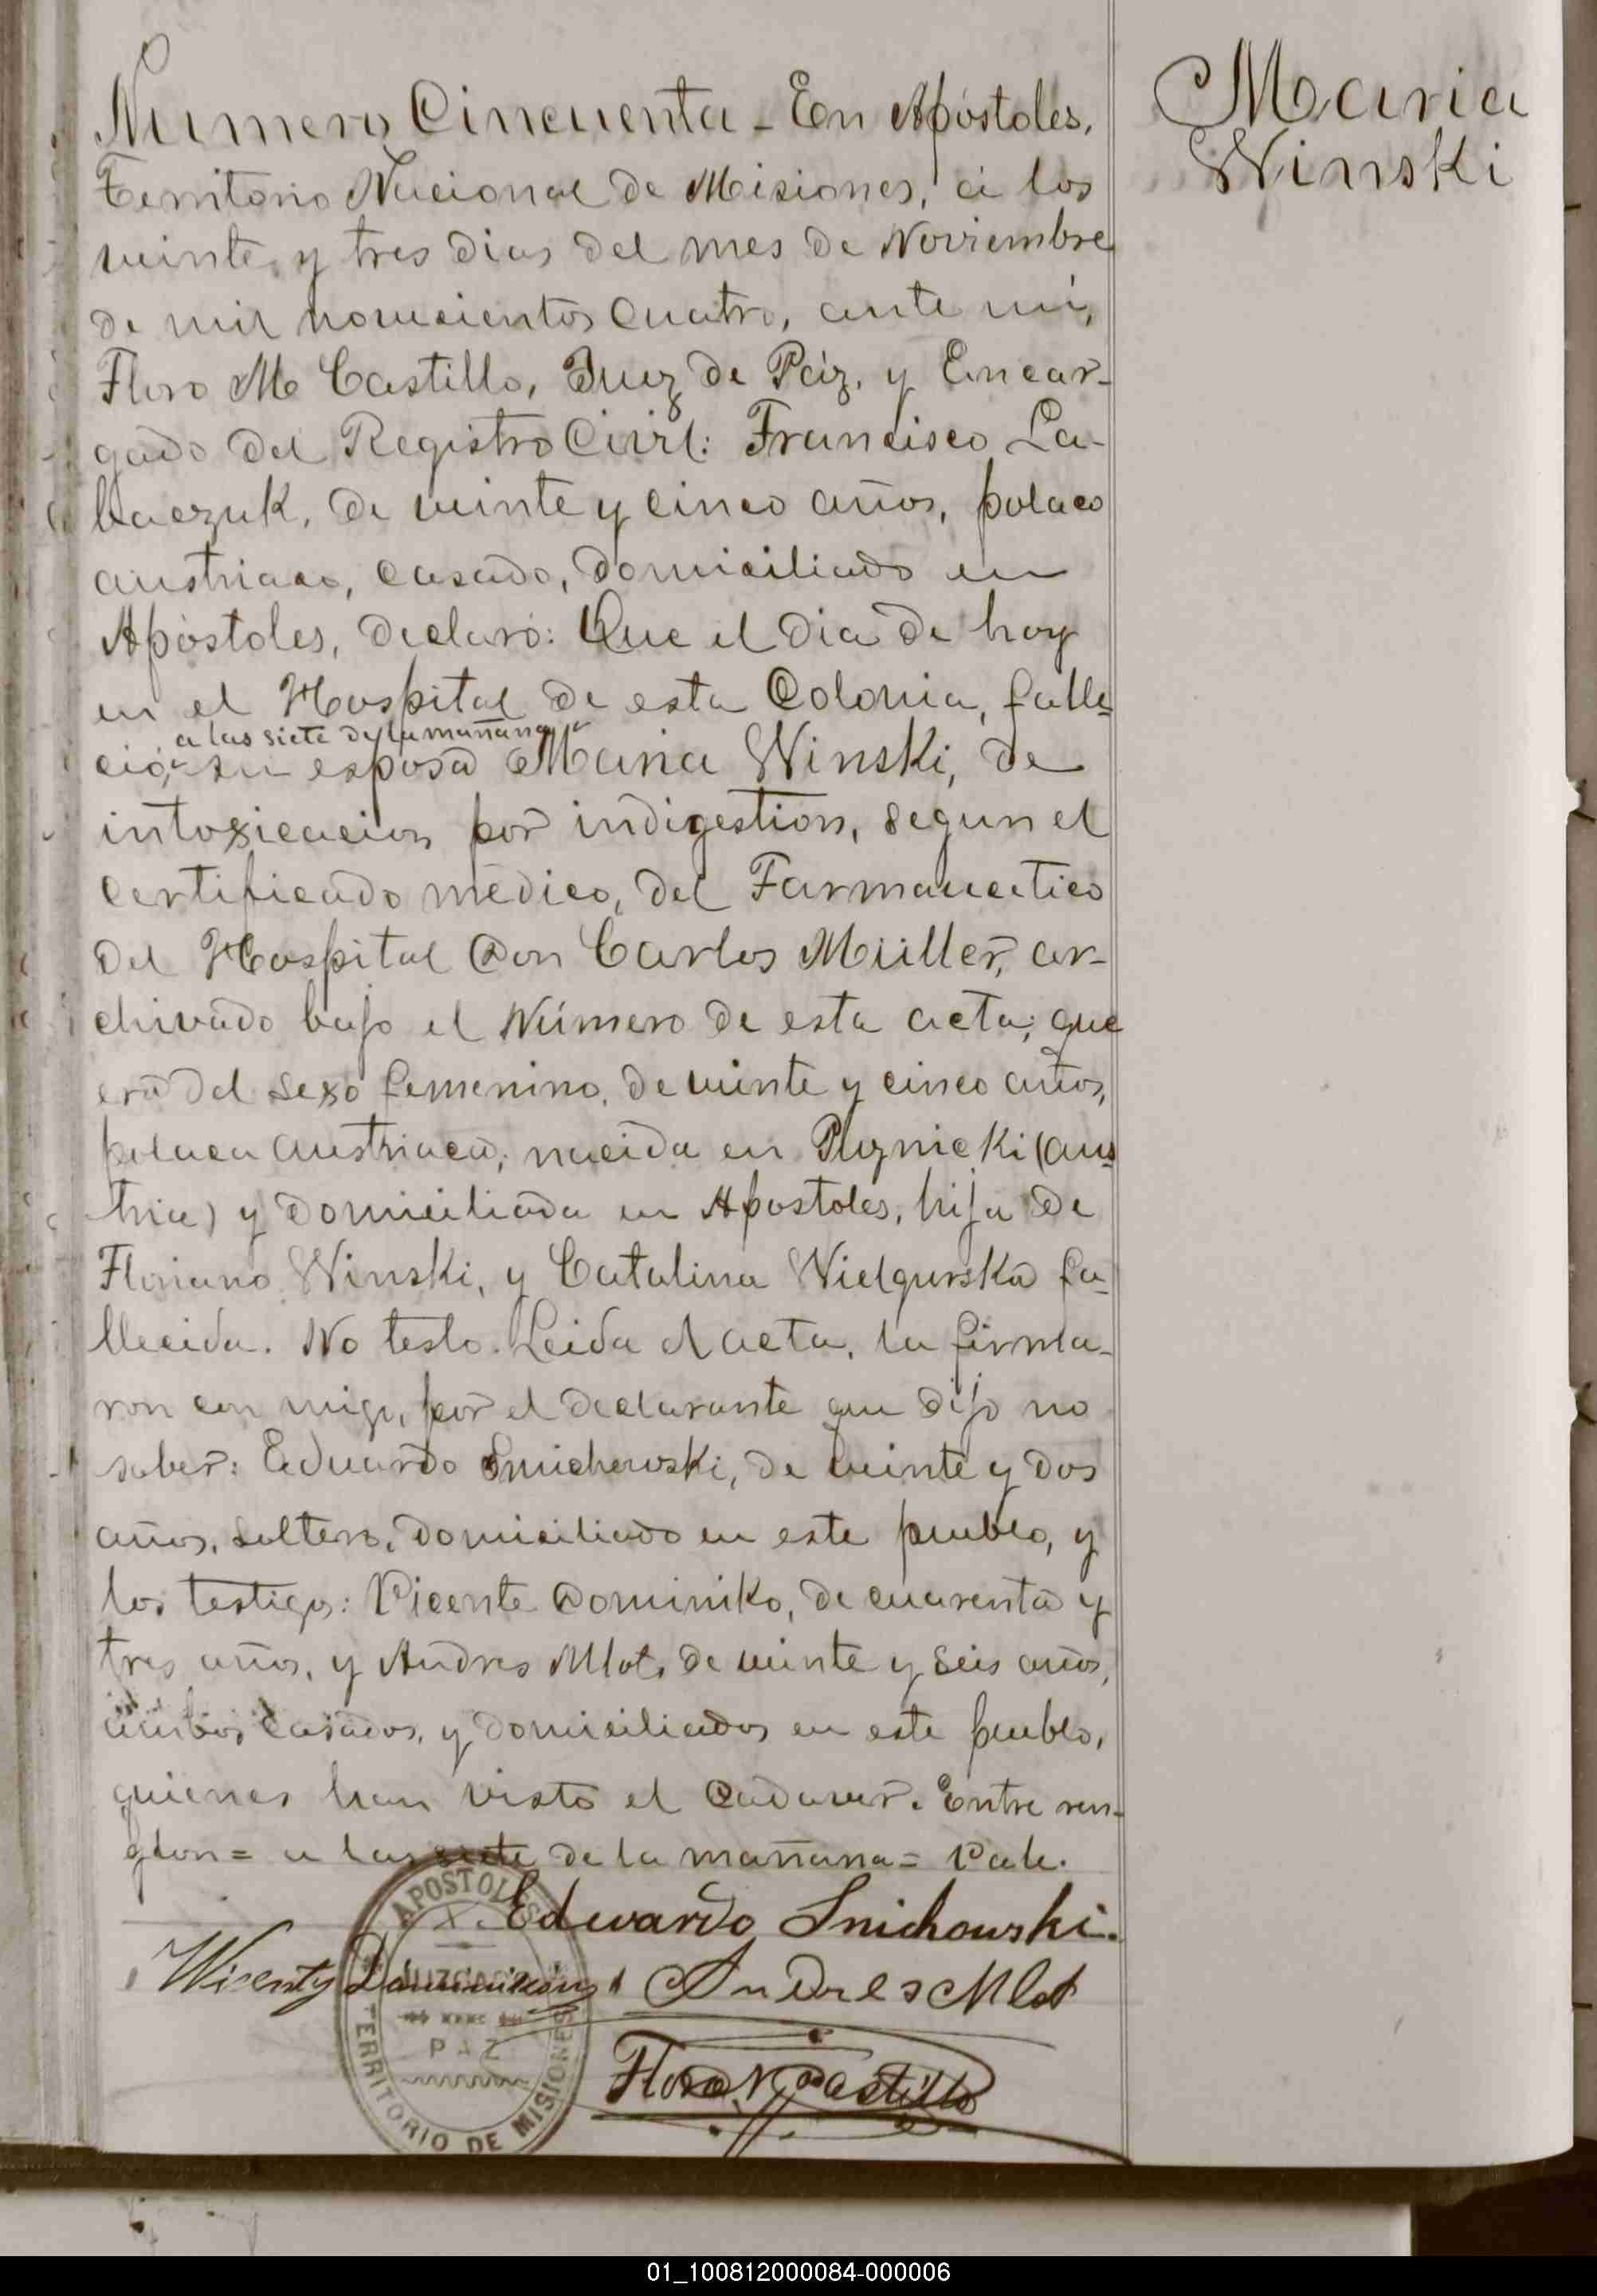 Numero Cincuenta - En Apóstoles,
Territorio Nacional de Misiones, á los
veinte y tres dias del mes de Noviembre
de mil novecientos cuatro, ante mi,
Floro M Castillo, Juez de Páz, y Encar-
gado del Registro Civil: Francisco La-
baczuk, de veinte y cinco años, polaco
austriaco, casado, domiciliado en
Apóstoles, declaró: Que el dia de hoy
en el Hospital de esta Colonia, falle-
a las siete de la mañana
ció, su esposa Maria Winski, de
intoxicacion por indigestion, segun el
certificado médico, del Farmaceutico
del Hospital Don Carlos Müller, ar-
chivado bajo el Número de esta acta; que
era del sexo femenino, de veinte y cinco años,
polaca austriaca, nacida en Puznicki (Aus-
tria) y domiciliada en Apostoles, hija de
Floriano Winski, y Catalina Wielgurska fa-
llecida. No testo. Leida el acta, la firma-
ron con migo, por el declarante que dijo no
saber: Eduardo Smichowski, de veinte y dos
años, soltero, domiciliado en este pueblo, y
los testigos: Vicente Dominiko, de cuarenta y
tres años, y Andres Mlot, de veinte y seis años,
ambos casados, y domiciliados en este pueblo,
quienes han visto el cadaver. Entre ren-
glon = a las siete de la mañana = Vale.
Eduardo Snichowski.
Wicenty Andres Mlot
Floro M Castillo
APOSTOLES
JUZGADO
PAZ
TERRITORIO DE MISIONES
Maria
Winski
01_100812000084-000006